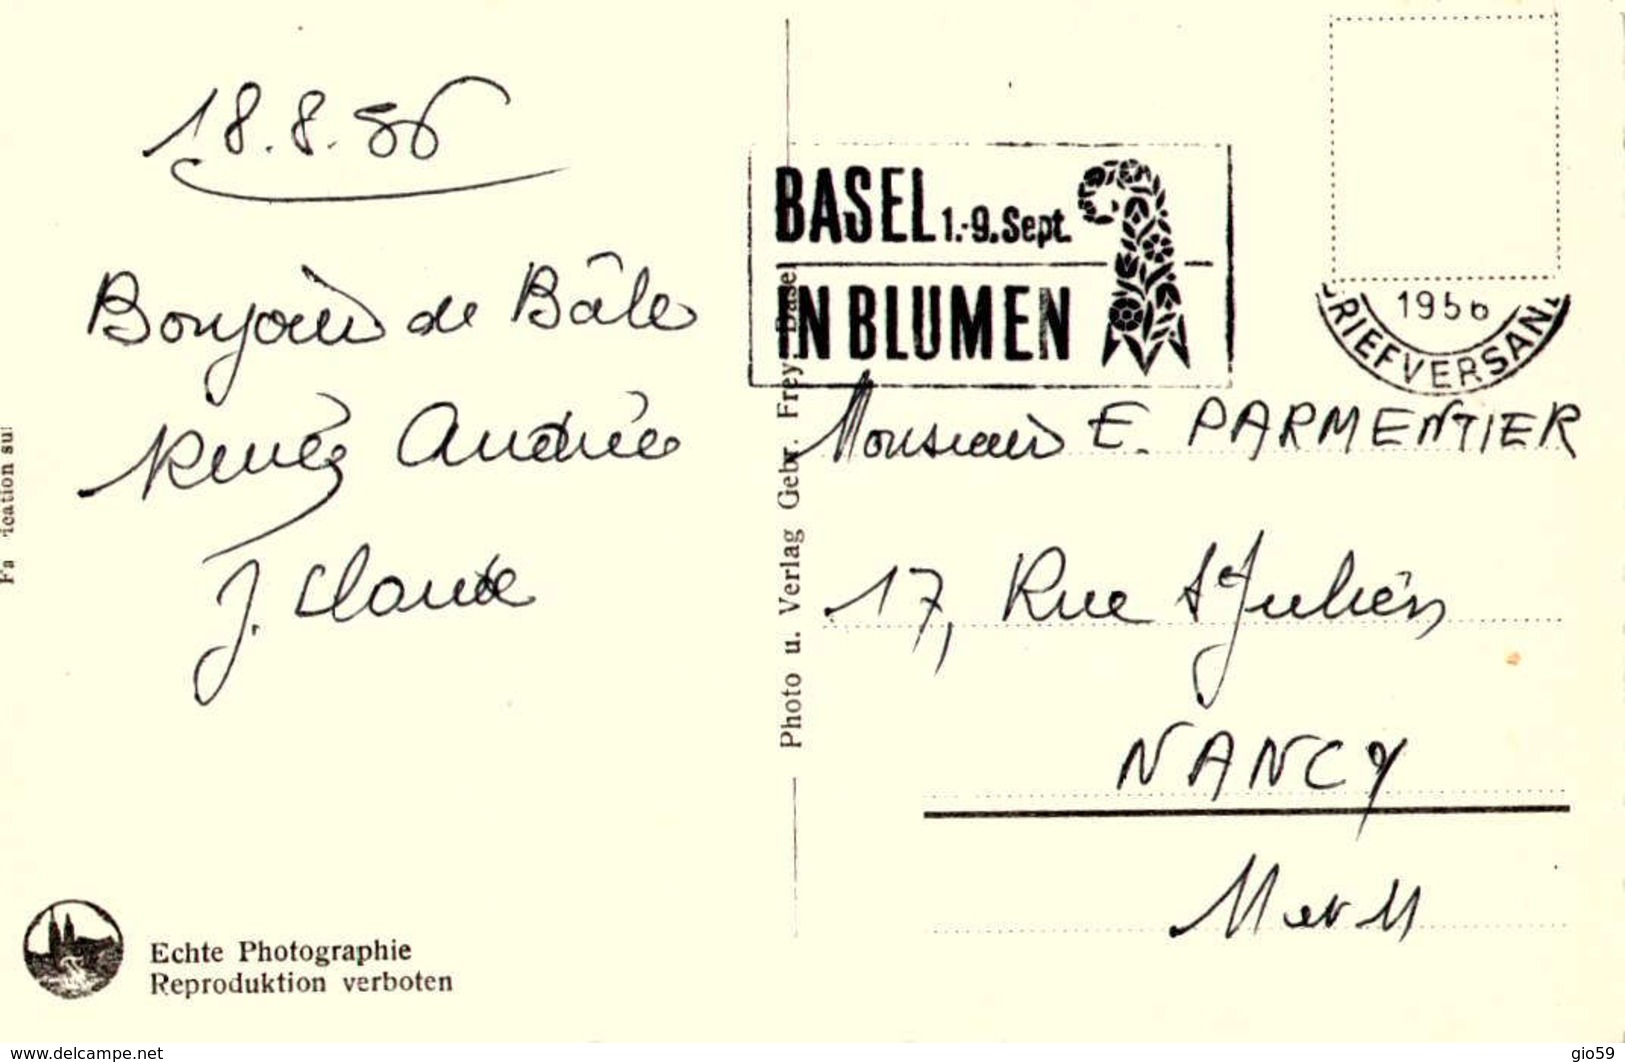 18.8.56
Bonjour de Bâle
Renée Andrée
J. Claude
Echte Photographie
Reproduktion verboten
Photo u. Verlag Gebr. Frey, Basel
BASEL 1.-9. Sept.
IN BLUMEN
1956
BRIEFVERSAND
Monsieur E. PARMENTIER
17, Rue St Julien
NANCY
M et M
www.delcampe.net
gio59